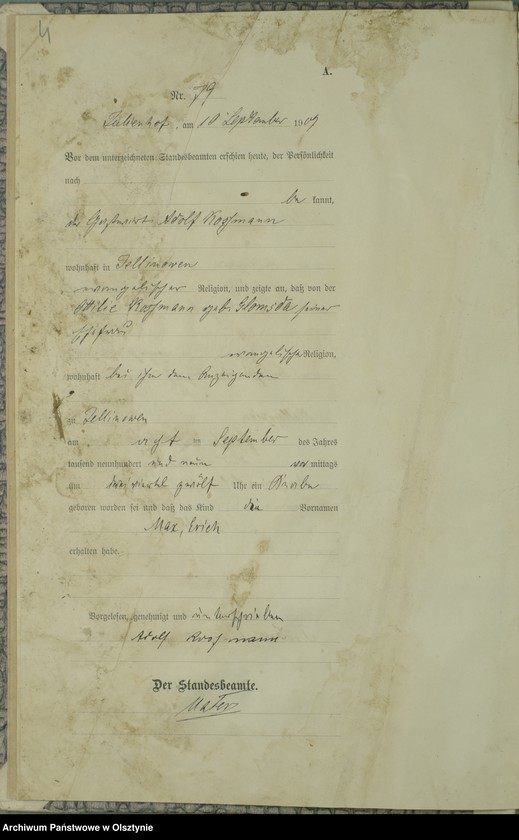 4
A.
Nr. 79
am 10 September 1909
Vor dem unterzeichneten Standesbeamten erschien heute, der Persönlichkeit
nach
be kannt,
der Gastwirt Adolf
wohnhaft in Jellinowen
evangelischer Religion, und zeigte an, daß von der
Ottilie geb. seiner
Ehefrau
evangelische Religion,
wohnhaft bei ihm dem Anzeigenden
zu Jellinowen
am acht September des Jahres
tausend neunhundert und neun vor mittags
um drei viertel zwölf Uhr ein Knabe
geboren worden sei und daß das Kind die Vornamen
Max, Erich
erhalten habe.
Vorgelesen, genehmigt und unterschrieben
Adolf
Der Standesbeamte.
Archiwum Państwowe w Olsztynie